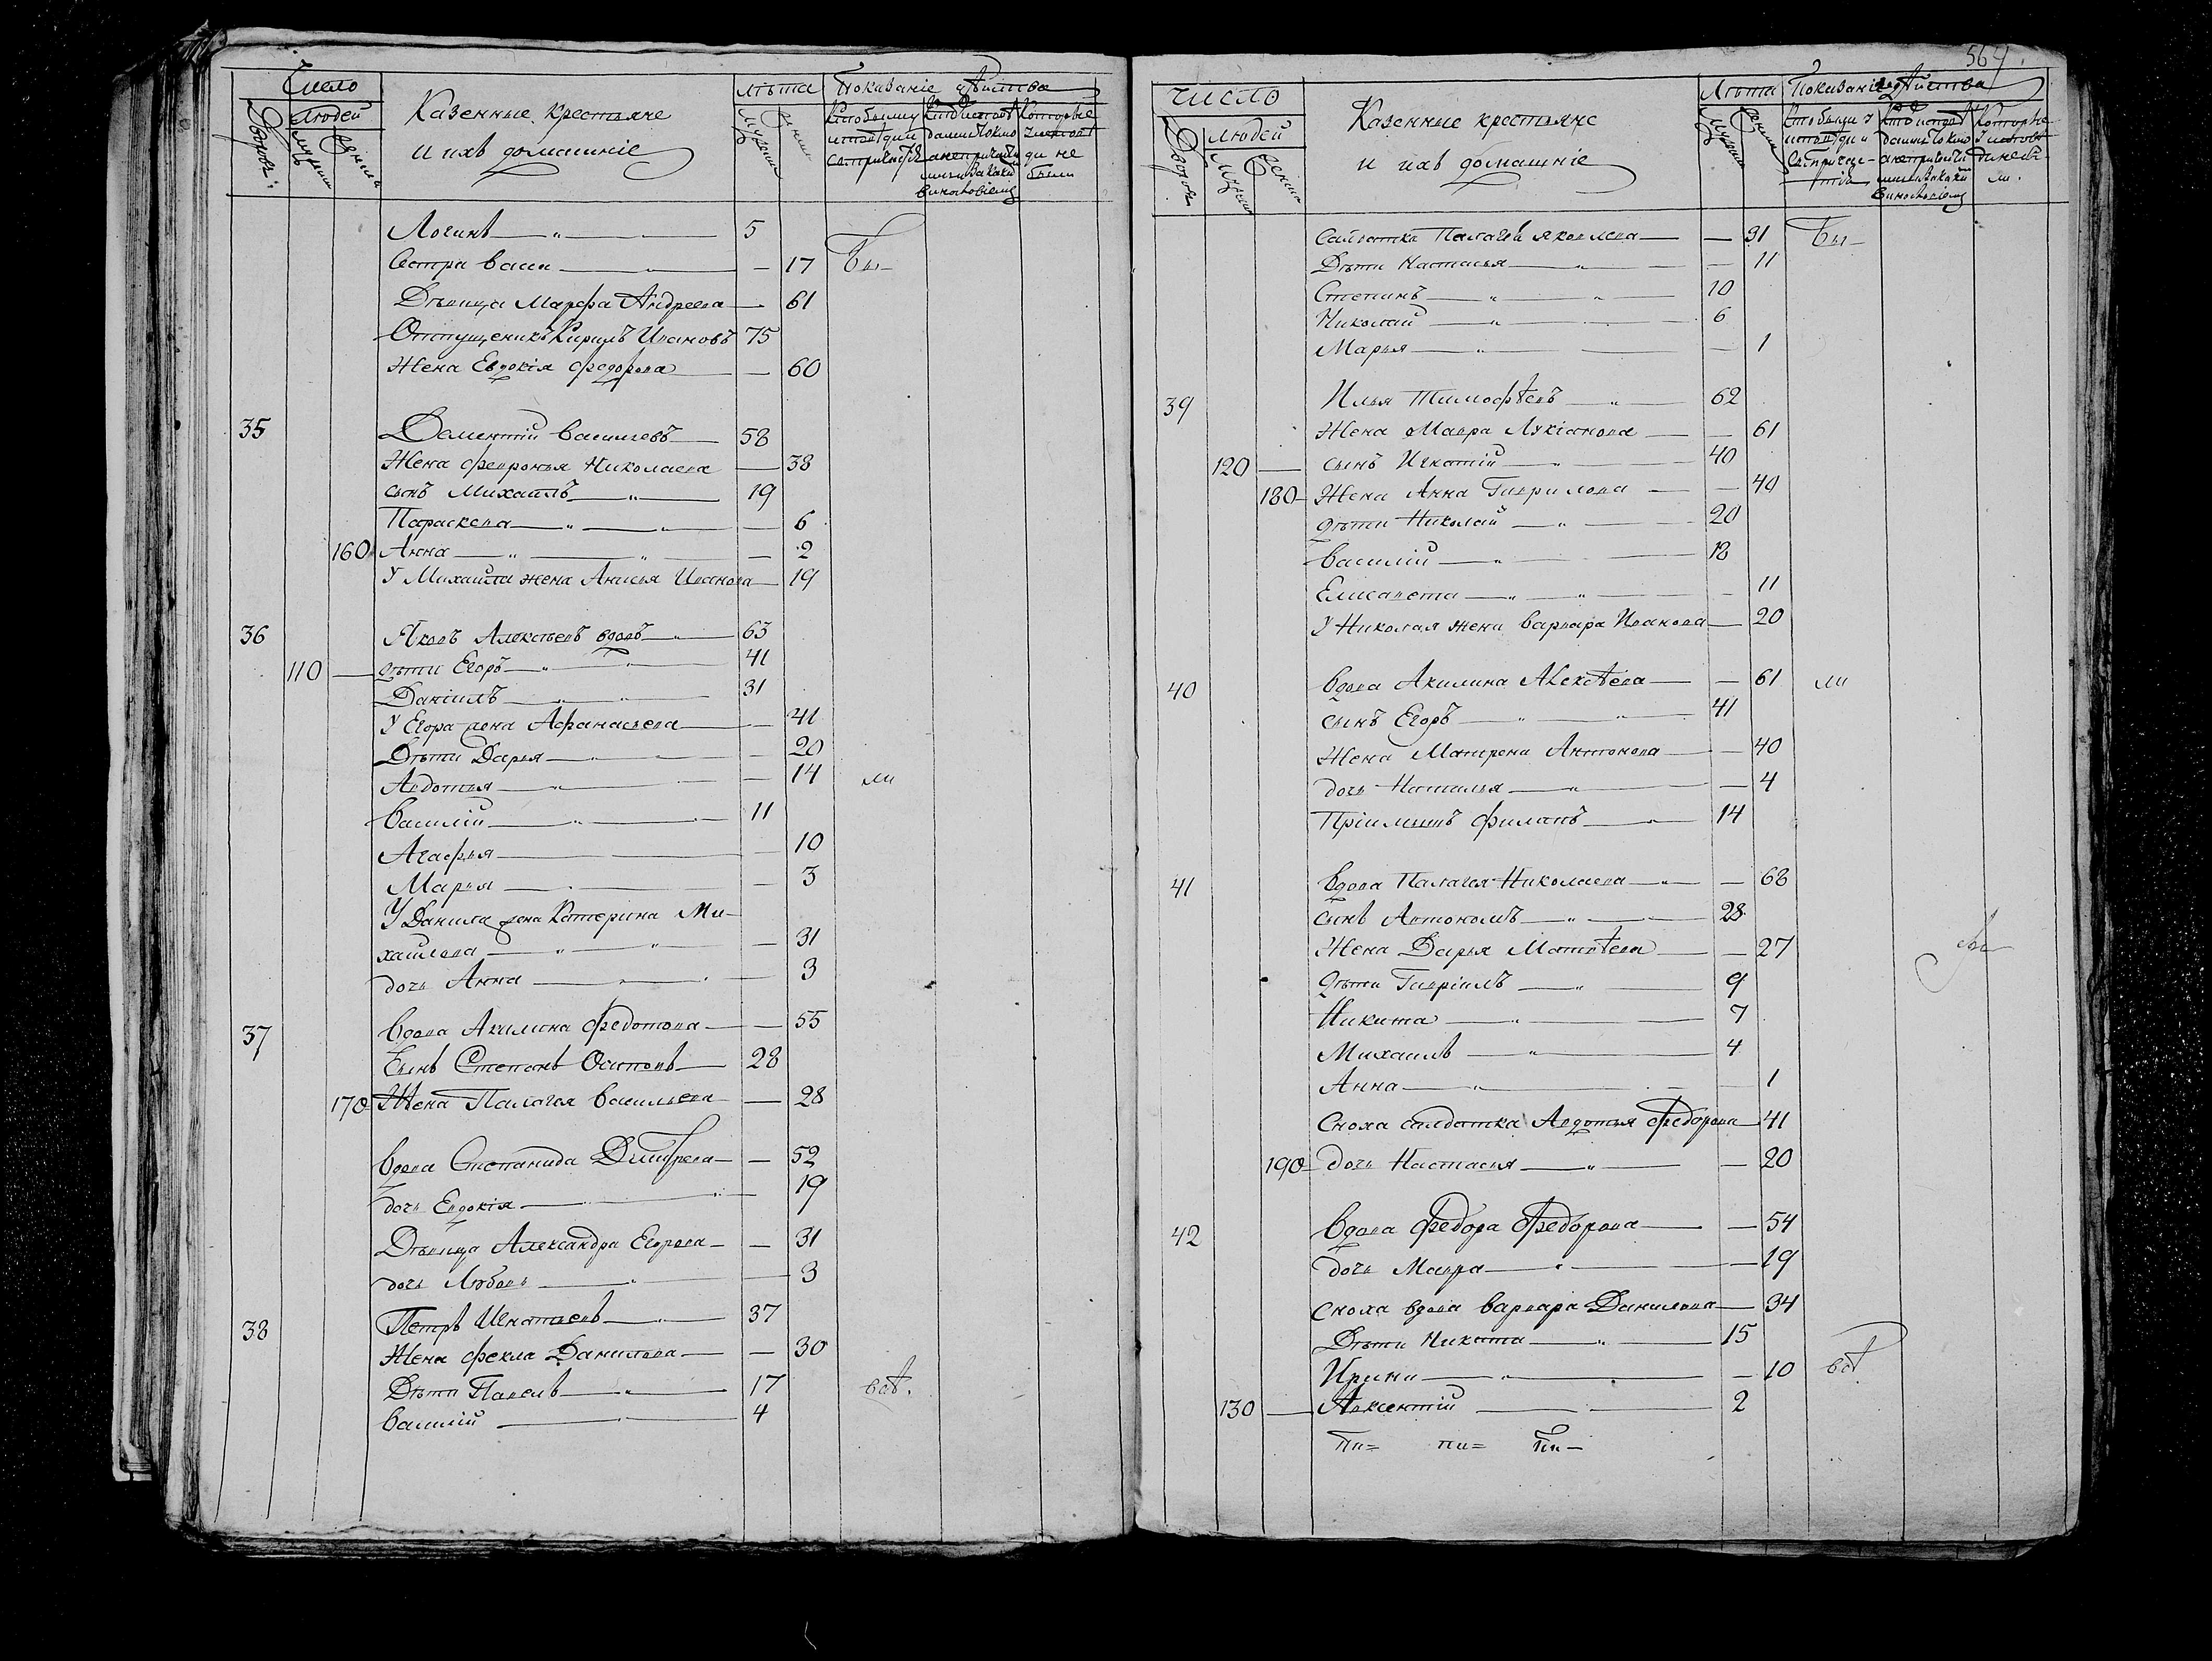 Число
Людей
Дворовъ
Мужеска
Женска
Казенные крестьяне
и ихъ домашніе
Лѣта
Показаніе дѣйства
Логинъ 5
Сестра Васса 17 Бы-
Дѣвица Марфа Андреева 61
Отпущеникъ Кирилъ Ивановъ 75
Жена Евдокія Федорова 60
35 Дементій Васильевъ 58
Жена Февронья Николаева 38
сынъ Михаилъ 19
Параскева 6
160 Анна 2
У Михаила жена Анисья Иванова 19
36 Яковъ Алексѣевъ вдовъ 63
110 дѣти Егоръ 41
Даніилъ 31
У Егора жена Афанасьева 41
Дѣти Дарья 20
Авдотья 14 ли
Василій 11
Агафья 10
Марья 3
У Данила жена Катерина Ми-
хайлова 31
дочь Анна 3
37 Вдова Акилина Федотова 55
Сынъ Степанъ Осиповъ 28
170 Жена Палагея Васильева 28
Вдова Степанида Дмитрева 52
дочь Евдокія 19
Дѣвица Александра Егорова 31
дочь Любовь 3
38 Петръ Игнатьевъ 37
Жена Фекла Данилова 30
Дѣти Павелъ 17 всѣ.
Василій 4
564
Число
Людей
Дворовъ
Мужеска
Женска
Казенные крестьяне
и ихъ домашніе
Лѣта
Показаніе дѣйства
Салдатка Палагея Яковлева 31 Бы-
Дѣти Настасья 11
Степанъ 10
Николай 6
Марья 1
39 Илья Тимофѣевъ 62
Жена Мавра Лукіанова 61
120 сынъ Игнатій 40
180 Жена Анна Гаврилова 40
дѣти Николай 20
Василій 18
Елисавета 11
У Николая жена Варвара Иванова 20
40 Вдова Акилина Алексѣева 61 ли
сынъ Егоръ 41
Жена Матрена Антонова 40
дочь Наталья 4
Пріимышъ Филатъ 14
41 Вдова Палагея Николаева 68
сынъ Автономъ 28
Жена Дарья Матвѣева 27
Дѣти Гавріилъ 9
Никита 7
Михаилъ 4
Анна 1
Сноха салдатка Авдотья Федорова 41
190 дочь Настасья 20
42 Вдова Федора Федорова 54
дочь Мавра 19
Сноха вдова Варвара Данилова 34
Дѣти Никита 15
Ирина 10 всѣ
130 Авксентій 2